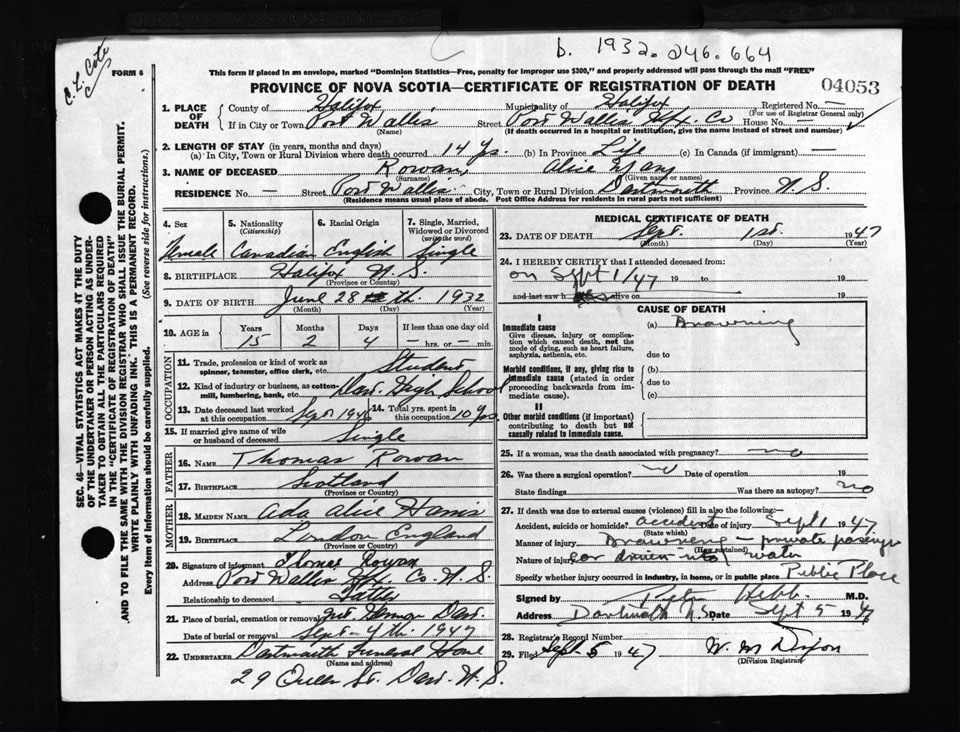 b. 1932. 246.664
C. L. Cote
FORM 6
This form if placed in an envelope, marked "Dominion Statistics—Free, penalty for improper use $300," and properly addressed will pass through the mail "FREE"
PROVINCE OF NOVA SCOTIA—CERTIFICATE OF REGISTRATION OF DEATH
04053
1. PLACE OF DEATH
County of Halifax Municipality of Halifax Registered No. —
(For use of Registrar General only)
If in City or Town Port Wallis Street Port Wallis Hfx. Co House No. —
(Name) (If death occurred in a hospital or institution, give the name instead of street and number)
2. LENGTH OF STAY (in years, months and days)
(a) In City, Town or Rural Division where death occurred 14 Yrs. (b) In Province Life (c) In Canada (if immigrant) —
3. NAME OF DECEASED Rowan, Alice Mary
(Surname) (Given name or names)
RESIDENCE No. — Street Port Wallis City, Town or Rural Division Dartmouth Province N. S.
(Residence means usual place of abode. Post Office Address for residents in rural parts not sufficient)
4. Sex Female
5. Nationality (Citizenship) Canadian
6. Racial Origin English
7. Single, Married, Widowed or Divorced (write the word) Single
8. BIRTHPLACE Halifax N. S.
(Province or Country)
9. DATE OF BIRTH June 28 th. 1932
(Month) (Day) (Year)
10. AGE in Years Months Days If less than one day old
15 2 4 — hrs. or — min.
OCCUPATION
11. Trade, profession or kind of work as spinner, teamster, office clerk, etc. Student
12. Kind of industry or business, as cotton-mill, lumbering, bank, etc. Dart. High School
13. Date deceased last worked at this occupation Sept 194 14. Total yrs. spent in this occupation 10 yrs.
15. If married give name of wife or husband of deceased Single
FATHER
16. NAME Thomas Rowan
17. BIRTHPLACE Scotland
(Province or Country)
MOTHER
18. MAIDEN NAME Ada Alice Harris
19. BIRTHPLACE London England
(Province or Country)
20. Signature of informant Thomas Rowan
Address Port Wallis Hfx. Co. N. S.
Relationship to deceased Father
21. Place of burial, cremation or removal Mt. Hermon Dart.
Date of burial or removal Sept - 4th. 1947
22. UNDERTAKER Dartmouth Funeral Home
(Name and address)
29 Queen St. Dart. N. S.
MEDICAL CERTIFICATE OF DEATH
23. DATE OF DEATH Sept. 1st. 1947
(Month) (Day) (Year)
24. I HEREBY CERTIFY that I attended deceased from:
on Sept 1/47 19 to 19
and last saw h alive on 19
CAUSE OF DEATH
I
Immediate cause (a) Drowning
Give disease, injury or complication which caused death, not the mode of dying, such as heart failure, asphyxia, asthenia, etc.
due to
Morbid conditions, if any, giving rise to immediate cause (stated in order proceeding backwards from immediate cause).
(b)
due to
(c)
II
Other morbid conditions (if important) contributing to death but not causally related to immediate cause.
25. If a woman, was the death associated with pregnancy? no
26. Was there a surgical operation? no Date of operation 19
State findings Was there an autopsy? no
27. If death was due to external causes (violence) fill in also the following:—
Accident, suicide or homicide? accident Date of injury Sept 1 1947
(State which)
Manner of injury Drowning — private passenger
(How sustained)
Nature of injury car driven into water
Specify whether injury occurred in industry, in home, or in public place Public Place
Signed by Hebb. M.D.
Address Dartmouth N.S. Date Sept 5 1947
28. Registrar's Record Number
29. Filed Sept. 5 1947 W. M Dixon
(Division Registrar)
SEC. 46—VITAL STATISTICS ACT MAKES IT THE DUTY
OF THE UNDERTAKER OR PERSON ACTING AS UNDER-
TAKER TO OBTAIN ALL THE PARTICULARS REQUIRED
IN THE "CERTIFICATE OF REGISTRATION OF DEATH"
AND TO FILE THE SAME WITH THE DIVISION REGISTRAR WHO SHALL ISSUE THE BURIAL PERMIT.
WRITE PLAINLY WITH UNFADING INK. THIS IS A PERMANENT RECORD.
Every item of information should be carefully supplied. (See reverse side for instructions.)